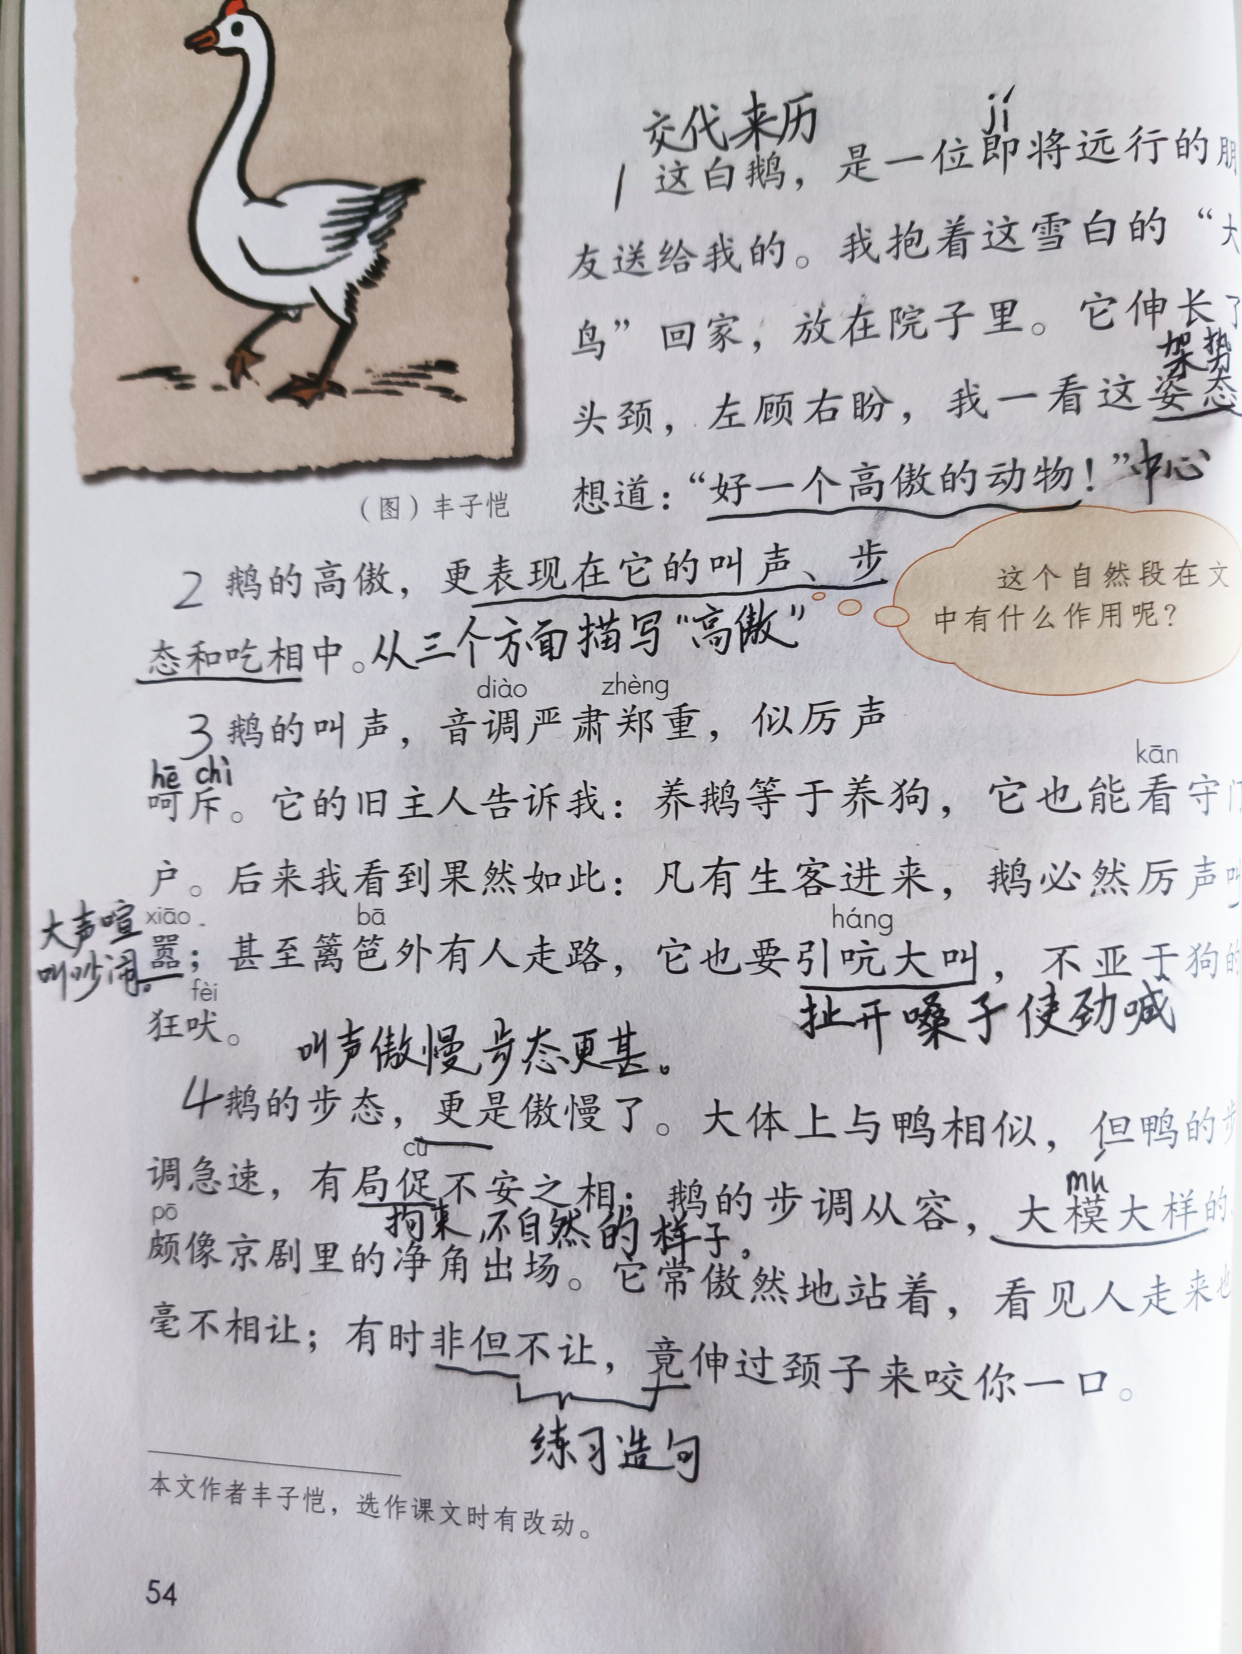 交代来历
jí
1 这白鹅，是一位即将远行的朋
友送给我的。我抱着这雪白的“大
鸟”回家，放在院子里。它伸长了
架势
头颈，左顾右盼，我一看这姿态
想道：“好一个高傲的动物！”中心
（图）丰子恺
2 鹅的高傲，更表现在它的叫声、步
态和吃相中。从三个方面描写“高傲”
这个自然段在文
中有什么作用呢？
diào zhèng
3 鹅的叫声，音调严肃郑重，似厉声
hē chì kān
呵斥。它的旧主人告诉我：养鹅等于养狗，它也能看守门
户。后来我看到果然如此：凡有生客进来，鹅必然厉声叫
大声喧
叫吵闹。
xiāo bā háng
嚣；甚至篱笆外有人走路，它也要引吭大叫，不亚于狗的
fèi
狂吠。
扯开嗓子使劲喊
叫声傲慢步态更甚。
4 鹅的步态，更是傲慢了。大体上与鸭相似，但鸭的步
cù mú
调急速，有局促不安之相；鹅的步调从容，大模大样的，
拘束，不自然的样子。
pō
颇像京剧里的净角出场。它常傲然地站着，看见人走来也
毫不相让；有时非但不让，竟伸过颈子来咬你一口。
练习造句
本文作者丰子恺，选作课文时有改动。
54